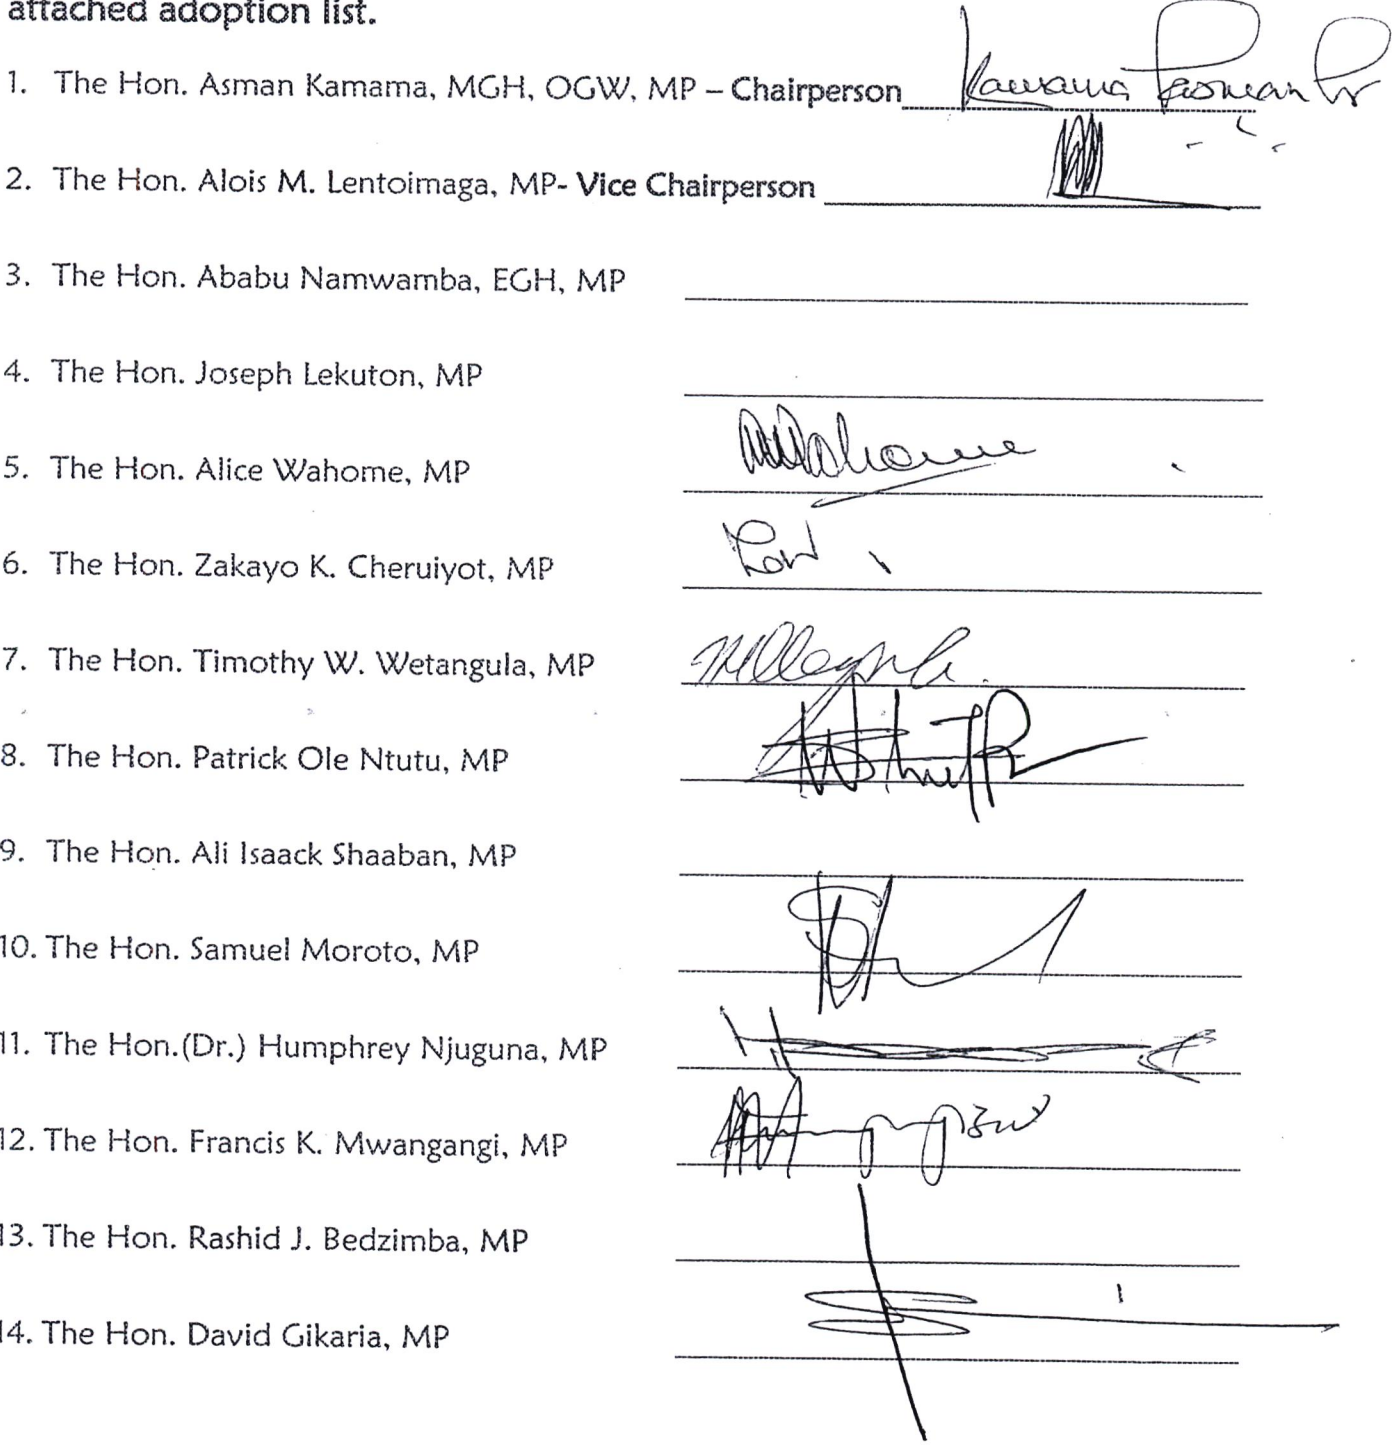 attached adoption list.
1. The Hon. Asman Kamama, MGH, OGW, MP – Chairperson
2. The Hon. Alois M. Lentoimaga, MP- Vice Chairperson
3. The Hon. Ababu Namwamba, EGH, MP
4. The Hon. Joseph Lekuton, MP
5. The Hon. Alice Wahome, MP
6. The Hon. Zakayo K. Cheruiyot, MP
7. The Hon. Timothy W. Wetangula, MP
8. The Hon. Patrick Ole Ntutu, MP
9. The Hon. Ali Isaack Shaaban, MP
10. The Hon. Samuel Moroto, MP
11. The Hon.(Dr.) Humphrey Njuguna, MP
12. The Hon. Francis K. Mwangangi, MP
13. The Hon. Rashid J. Bedzimba, MP
14. The Hon. David Gikaria, MP